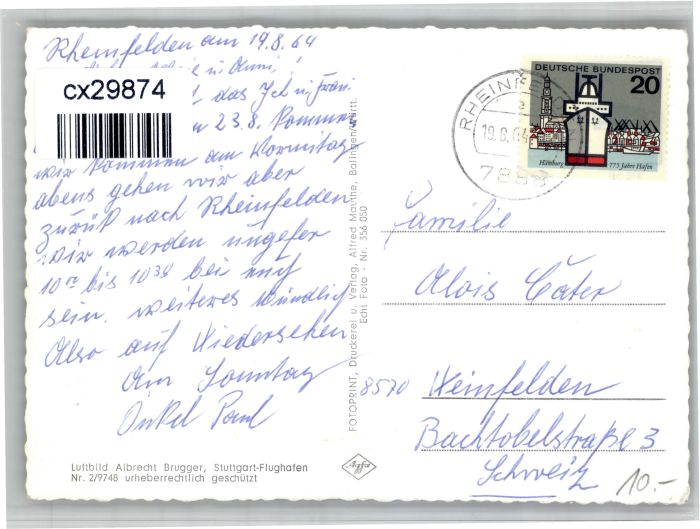 Rheinfelden am 19.8.64
cx29874
das Ich u. Frau
23.8. kommen
wir kommen am Vormittag
abens gehen wir aber
zurük nach Rheinfelden
wir werden ungefer
10 bis 10³⁰ bei euch
sein. weiteres Mündlich
Also auf Wiedersehen
am Sonntag
Onkel Paul
Luftbild Albrecht Brugger, Stuttgart-Flughafen
Nr. 2/9748 urheberrechtlich geschützt
FOTOPRINT, Druckerei u. Verlag, Alfred Mauthe, Balingen/Württ.
Echt Foto - Nr. 356 050
Agfa
RHEINFE
19.8.64
DEUTSCHE BUNDESPOST
20
Hamburg
775 Jahre Hafen
Familie
Alois Cater
8570 Weinfelden
Bachtobelstraße 3
Schweiz
10.-